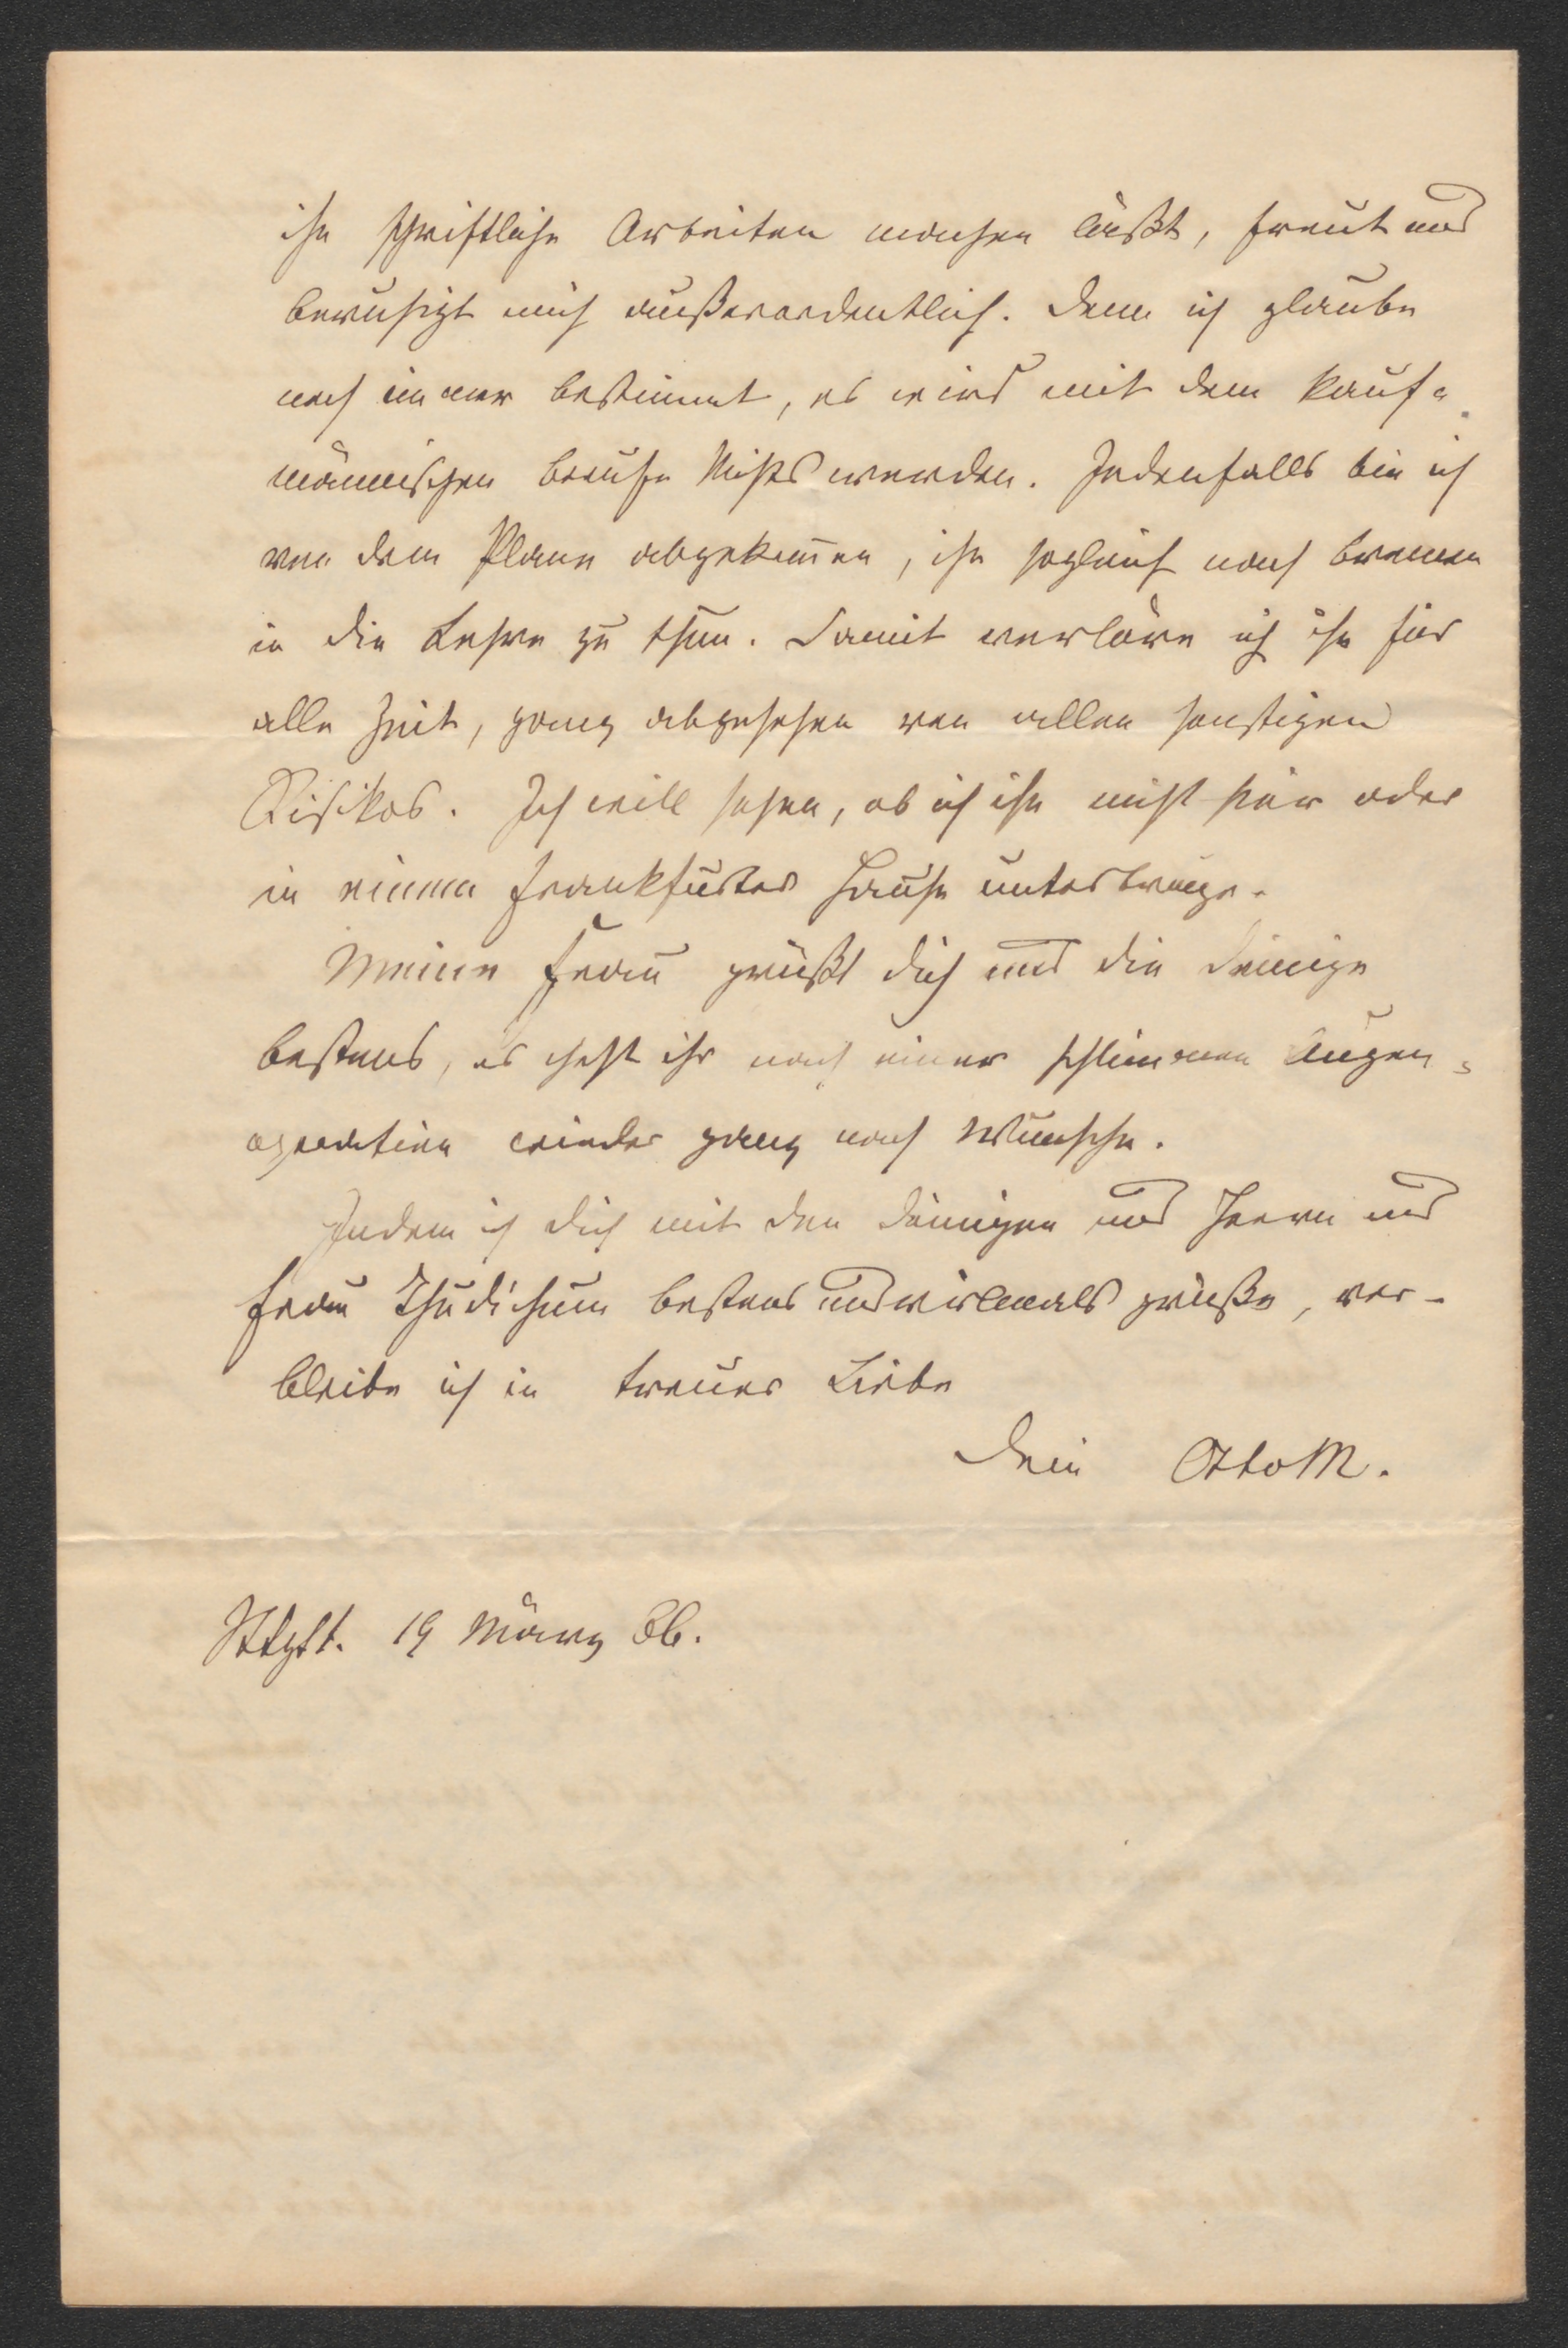 ihn schriftliche Arbeiten machen läßt, freut und
beruhigt mich außerordentlich. Denn ich glaube
noch immer bestimmt, es wird mit dem kauf-
männischen Berufe Nichts werden. Jedenfalls bin ich
von dem Plane abgekom̅en, ihn sogleich nach Bremen
in die Lehre zu thun. Damit verlöre ich ihn für
alle Zeit, ganz abgesehen von allen sonstigen
Risikos. Ich will sehen, ob ich ihn nicht hier oder
in einem Frankfurter Hause unterbringe.
Meine Frau grüßt Dich und die Deinige
bestens, es geht ihr nach einer schlimmen Augen-
operation wieder ganz nach Wunsche.
Indem ich Dich mit den Deinigen und Herrn und
Frau Thudichum bestens und vielmals grüße, ver-
bleibe ich in treuer Liebe
Dein Otto M.
Sttgtt. 19 März 86.